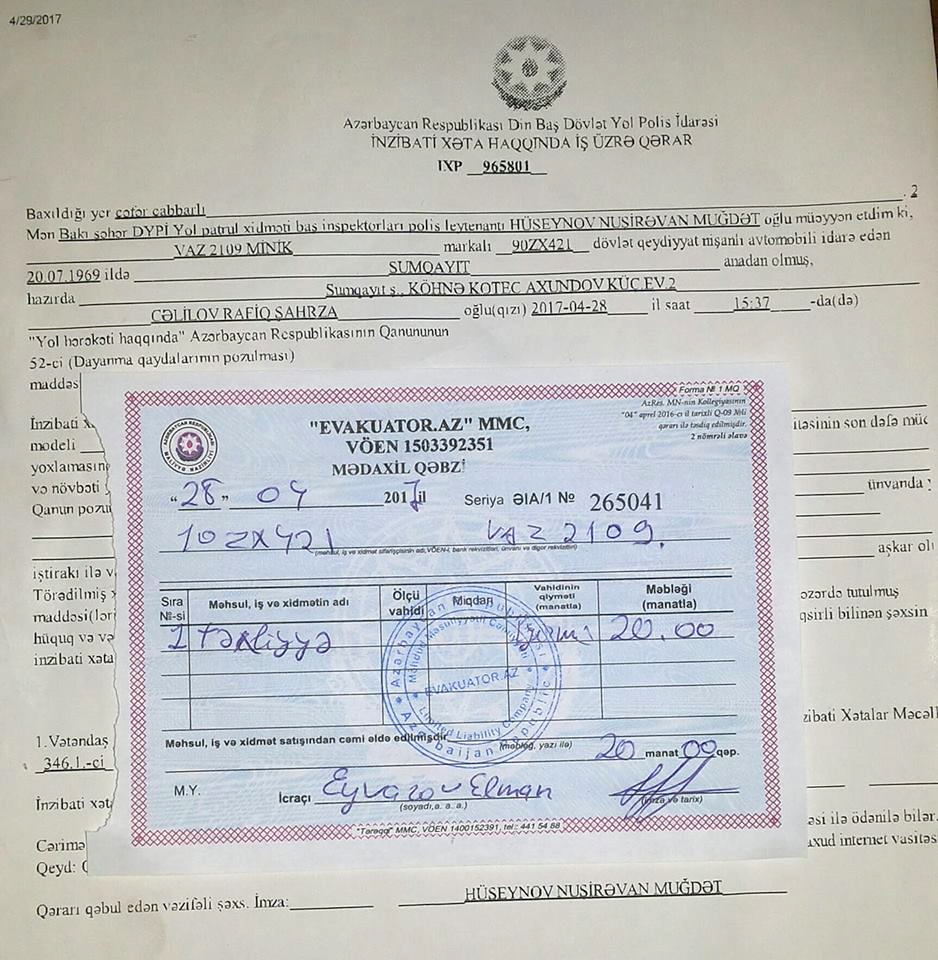 4/29/2017
Azərbaycan Respublikası Din Baş Dövlət Yol Polis İdarəsi
İNZİBATİ XƏTA HAQQINDA İŞ ÜZRƏ QƏRAR
IXP 965801
2
Baxıldığı yer cəfər cabbarlı
Mən Bakı şəhər DYPİ Yol patrul xidməti baş inspektorları polis leytenantı HÜSEYNOV NUSİRƏVAN MUĞDƏT oğlu müəyyən etdim ki,
VAZ 2109 MİNİK markalı 90ZX421 dövlət qeydiyyat nişanlı avtomobili idarə edən
20.07.1969 ildə SUMQAYIT anadan olmuş,
hazırda Sumqayıt ş., KÖHNƏ KOTEC AXUNDOV KÜÇ.EV.2
CƏLİLOV RAFİQ ŞAHRZA oğlu(qızı) 2017-04-28 il saat 15:37 -da(də)
"Yol hərəkəti haqqında" Azərbaycan Respublikasının Qanununun
52-ci (Dayanma qaydalarının pozulması)
maddəs
Forma № 1 MQ
AzRes. MN-nin Kollegiyasının
"04" aprel 2016-cı il tarixli Q-09 №li
qərarı ilə təsdiq edilmişdir.
2 nömrəli əlavə
AZƏRBAYCAN RESPUBLİKASI MALİYYƏ NAZİRLİYİ
"EVAKUATOR.AZ" MMC,
VÖEN 1503392351
MƏDAXİL QƏBZİ
"28" 04 2017 il Seriya ƏIA/1 № 265041
10ZX421 VAZ 2109.
(məhsul, iş və xidmət sifarişçisinin adı, VÖEN-i, bank rekvizitləri, ünvanı və digər rekvizitləri)
Sıra №-si Məhsul, iş və xidmətin adı Ölçü vahidi Miqdarı Vahidinin qiyməti (manatla) Məbləği (manatla)
1 Təxliyyə iyirmi 20.00
Azərbaycan Respublikası
Məhdud Məsuliyyətli Cəmiyyəti
EVAKUATOR.AZ
Limited Liability Company
Azerbaijan Republic
Məhsul, iş və xidmət satışından cəmi əldə edilmişdir 20 manat 00 qəp.
(məbləğ, yazı ilə)
M.Y. İcraçı Eyvazov Elman
(soyadı, a. a. a.) (imza və tarix)
"Tərəqqi" MMC, VÖEN 1400152391, tel.: 441 54 68
İnzibati x
itəsinin son dəfə müc
modeli
yoxlamasın
və növbəti
ünvanda
Qanun pozu
aşkar olu
iştirakı ilə v
Törədilmiş
əzərdə tutulmuş
maddəsi(lər
qsirli bilinən şəxsin
hüquq və və
inzibati xəta
zibati Xətalar Məcəll
1. Vətəndaş
346.1.-ci
İnzibati xət
əsi ilə ödənilə bilər.
Cərimə
axud internet vasitəs
Qeyd:
Qərarı qəbul edən vəzifəli şəxs. İmza: HÜSEYNOV NUSİRƏVAN MUĞDƏT